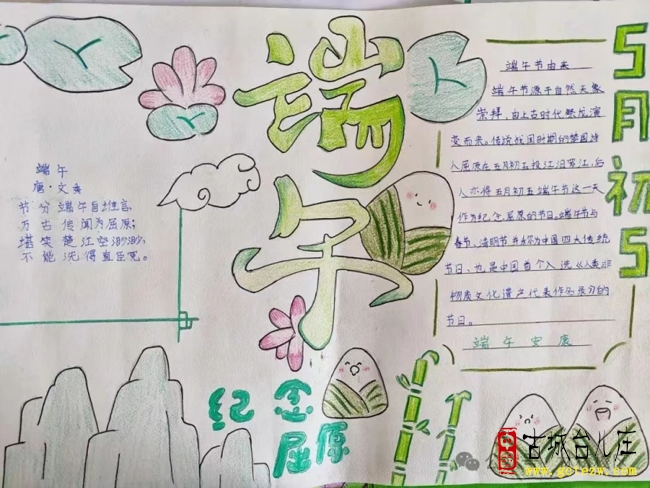 端午
端午
唐·文秀
节分端午自谁言,
万古传闻为屈原;
堪笑楚江空渺渺,
不能洗得直臣冤。
纪念
屈原
端午节由来
端午节源于自然天象
崇拜,由上古时代祭龙演
变而来。传说战国时期的楚国诗
人屈原在五月初五投江汨罗江,后
人亦将五月初五端午节这一天
作为纪念屈原的节日。端午节与
春节、清明节并称为中国四大传统
节日,也是中国首个入选《人类非
物质文化遗产代表作名录》的
节日。
端午安康
5月初5
古城台儿庄
www.gctezw.com